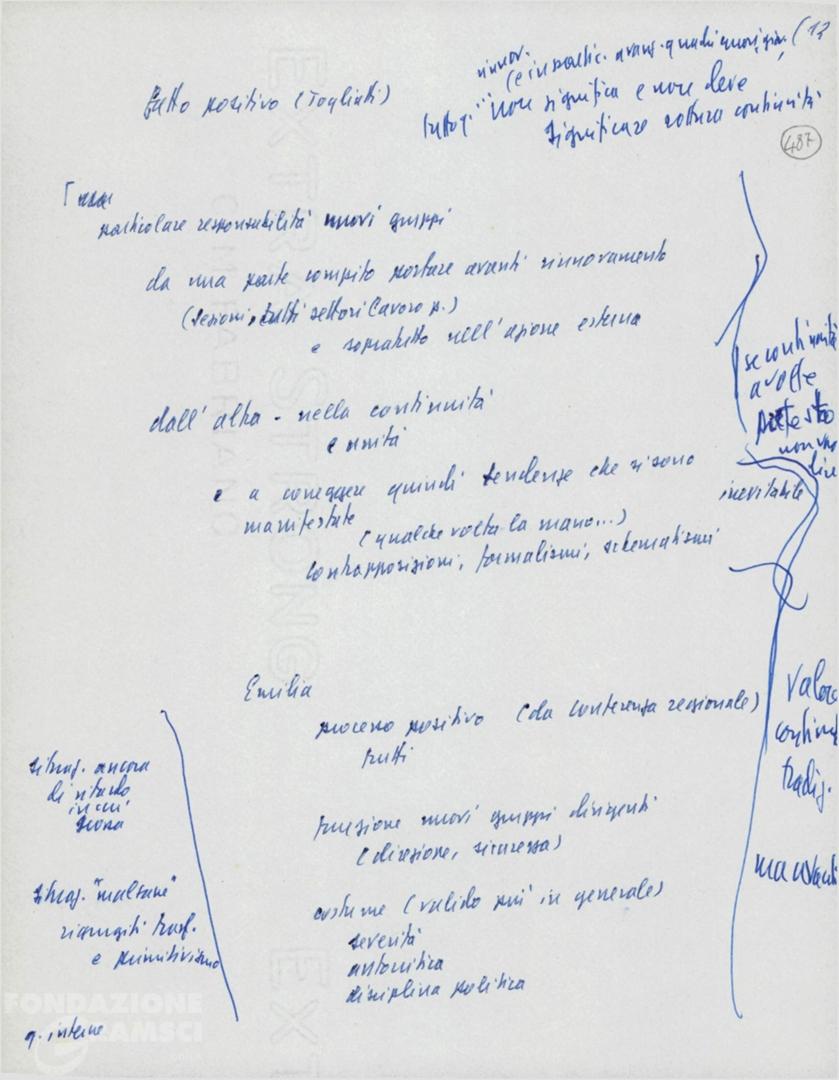 (12
rinnov.
(e in partic. avanz. quadri nuovi, giov.
fatto positivo (Togliatti)
"non significa e non deve
significare rottura continuità
487
particolare responsabilità nuovi gruppi
da una parte compito portare avanti rinnovamento
(sezioni, tutti settori lavoro p.)
e sopratutto nell'azione esterna
se continuità
a volte
pretesto
non vuol
dire
dall'altra - nella continuità
e unità
e a correggere quindi tendenze che si sono
manifestate
inevitabile
(qualche volta la mano...)
contrapposizioni, formalismi, schematismi
Emilia
processo positivo (da conferenza regionale)
frutti
valore
continu
tradiz.
ma avanti
situaz. ancora
di ritardo
in cui
funzione nuovi gruppi dirigenti
(direzione, sicurezza)
situaz. "malsane"
rigurgiti trasf.
e primitivismo
costume (valido più in generale)
severità
autocritica
disciplina politica
q. interne
FONDAZIONE
GRAMSCI
EXTRA STRONG
EXT